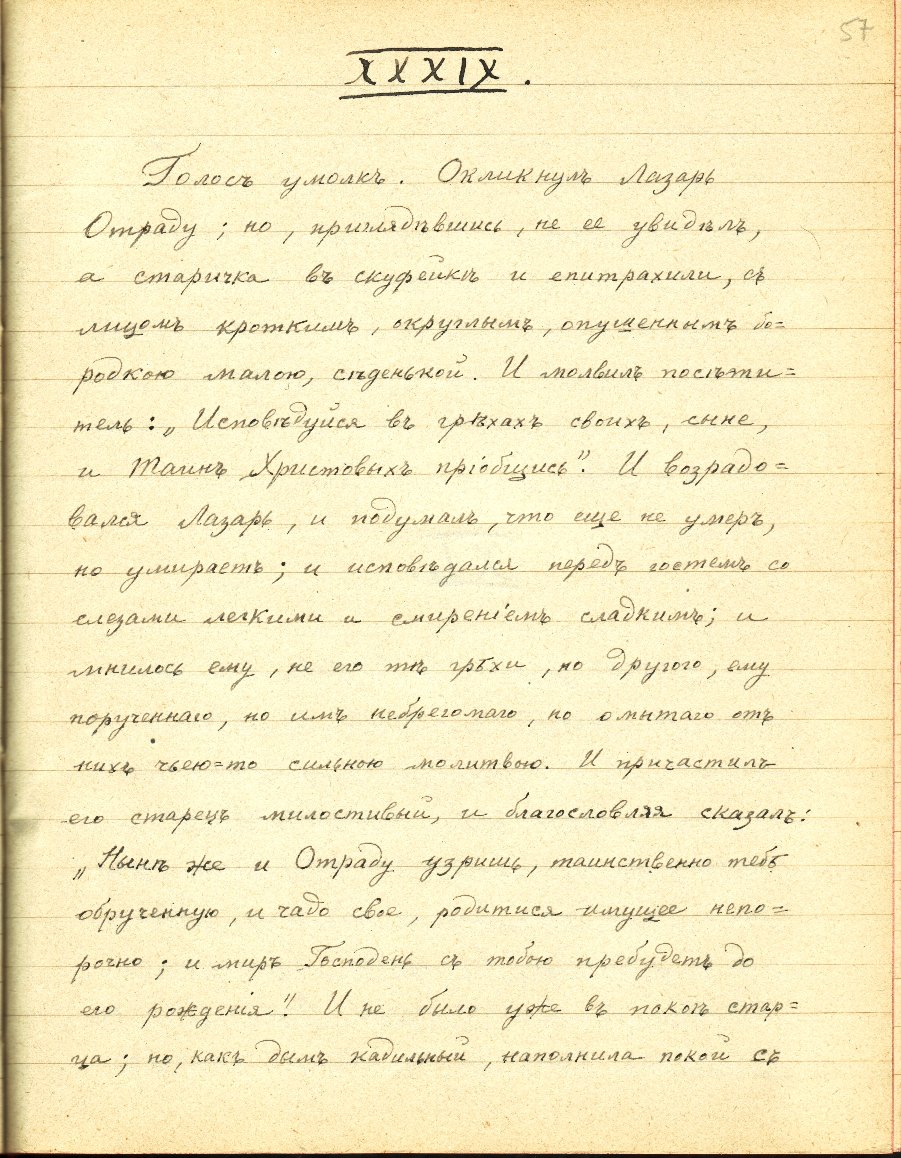 57
XXXIX.
Голосъ умолкъ. Окликнулъ Лазарь
Отраду; но, приглядѣвшись, не ее увидѣлъ,
а старичка въ скуфейкѣ и епитрахили, съ
лицомъ кроткимъ, округлымъ, опушеннымъ бо=
родкою малою, сѣденькой. И молвилъ посѣти=
тель: „Исповѣдуйся въ грѣхахъ своихъ, сыне,
и Таинъ Христовыхъ пріобщись". И возрадо=
вался Лазарь, и подумалъ, что еще не умеръ,
но умираетъ; и исповѣдался передъ гостемъ со
слезами легкими и смиреніемъ сладкимъ; и
мнилось ему, не его тѣ грѣхи, но другого, ему
порученнаго, но имъ небрегомаго, но омытаго отъ
нихъ чьею=то сильною молитвою. И причастилъ
его старецъ милостивый, и благословляя сказалъ:
„Нынѣ же и Отраду узришь, таинственно тебѣ
обрученную, и чадо свое, родитися имущее непо=
рочно; и миръ Господень съ тобою пребудетъ до
его рожденія"! И не было уже въ покоѣ стар=
ца; но, какъ дымъ кадильный, наполнила покой съ